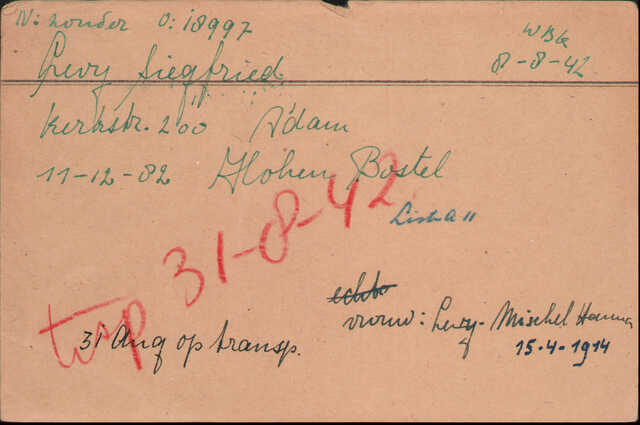 N: zonder O: 18997
WBk
8-8-42
Levy Siegfried
Kerkstr. 200" A'dam
11-12-82 Hohen Bostel
Lista 11
trsp 31-8-42
echtg
vrouw: Levy-Mischel Hanna
31 Aug op transp.
15-4-1914